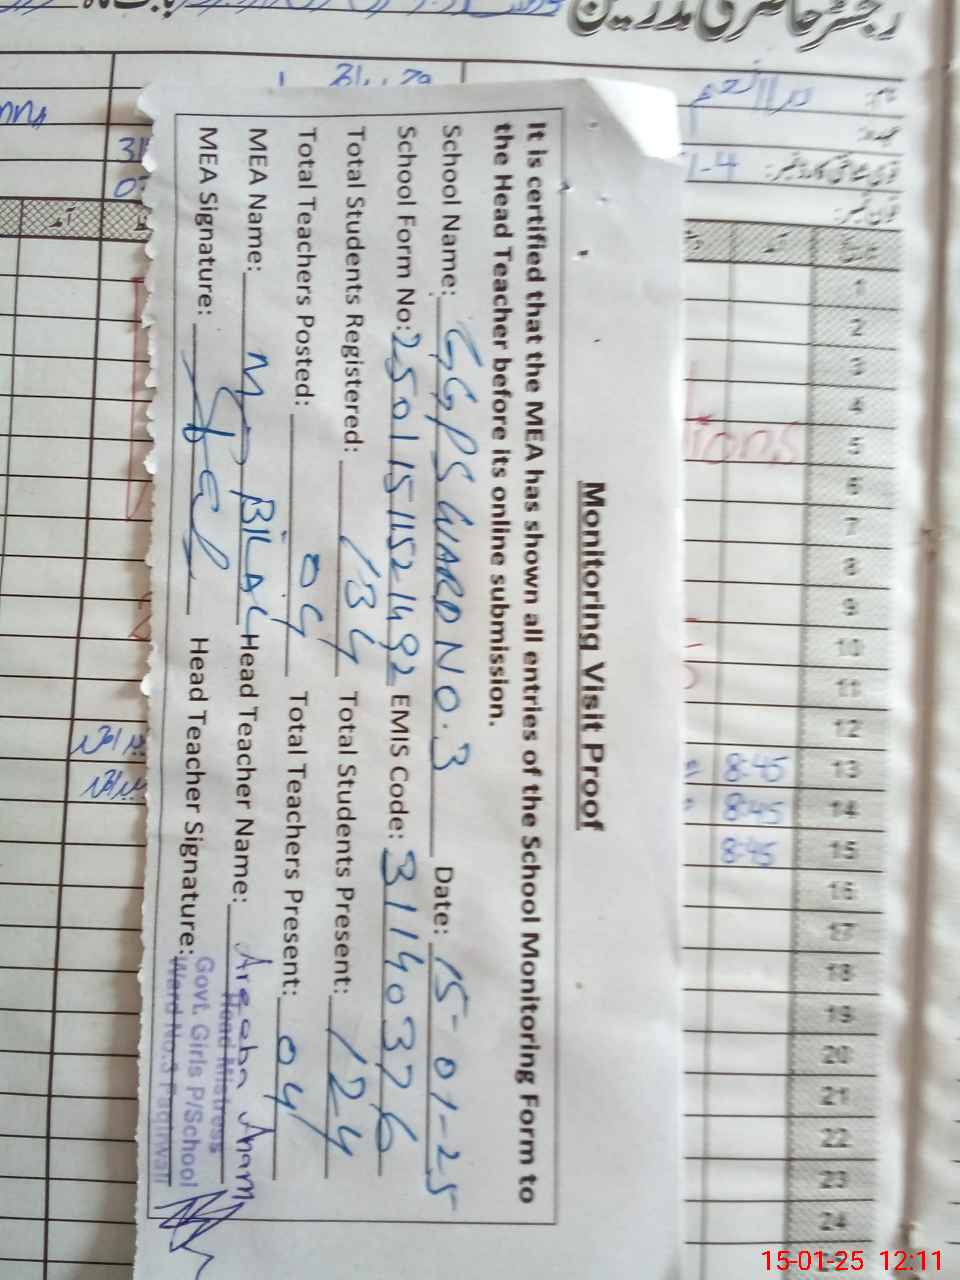 رجسٹر حاضری مدرسین
Monitoring Visit Proof
It is certified that the MEA has shown all entries of the School Monitoring Form to
the Head Teacher before its online submission.
School Name: GGPS WARD NO. 3 Date: 15-01-25
School Form No: 25011511521492 EMIS Code: 31140376
Total Students Registered: 134 Total Students Present: 124
Total Teachers Posted: 04 Total Teachers Present: 04
MEA Name: MD BILAL Head Teacher Name: Areeba Anam
MEA Signature: Head Teacher Signature:
Head Mistress
Govt. Girls P/School
Ward No.3 Faqirwali
1
2
3
4
5
6
7
8
9
10
11
12
13 8:45
14 8:45
15 8:45
16
17
18
19
20
21
22
23
24
15-01-25 12:11